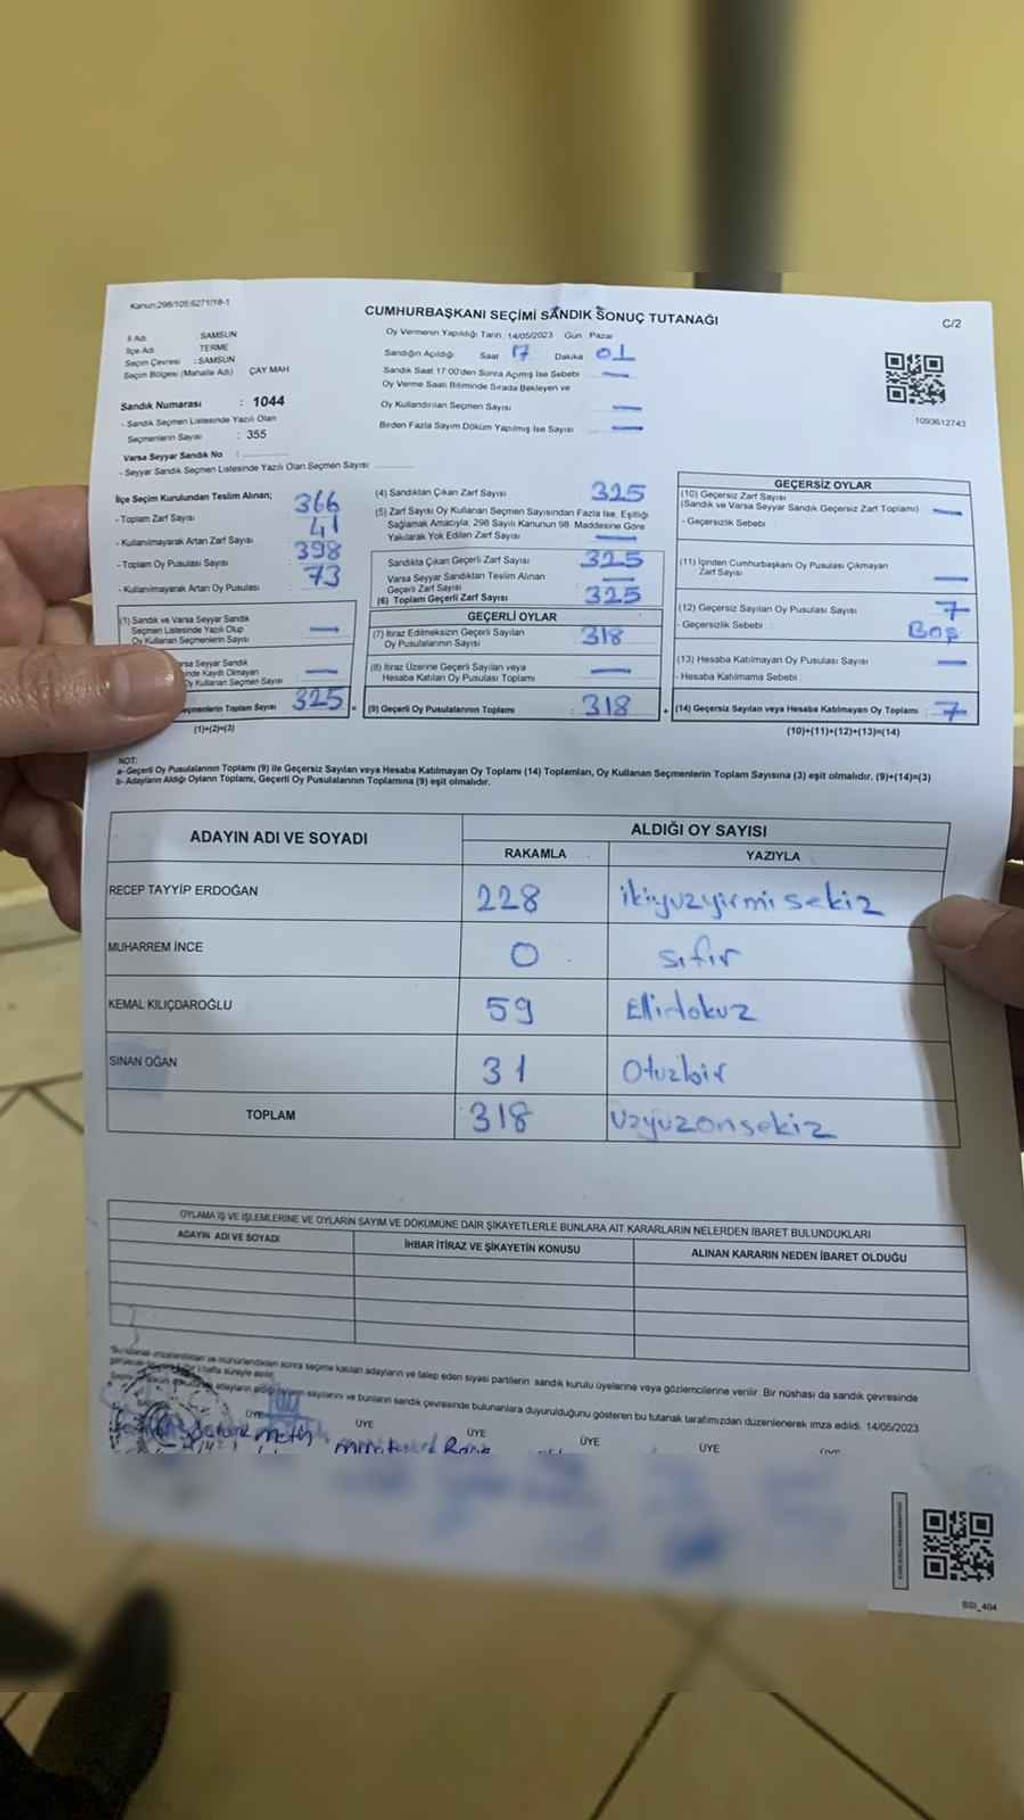 Kanun:298/105:6271/18-1
CUMHURBAŞKANI SEÇİMİ SANDIK SONUÇ TUTANAĞI
C/2
İl Adı SAMSUN
İlçe Adı TERME
Seçim Çevresi : SAMSUN
Seçim Bölgesi (Mahalle Adı) ÇAY MAH
Sandık Numarası : 1044
- Sandık Seçmen Listesinde Yazılı Olan
Seçmenlerin Sayısı : 355
Varsa Seyyar Sandık No :
- Seyyar Sandık Seçmen Listesinde Yazılı Olan Seçmen Sayısı
Oy Vermenin Yapıldığı Tarih: 14/05/2023 Gün: Pazar
Sandığın Açıldığı Saat 17 Dakika 01
Sandık Saat 17:00'den Sonra Açılmış İse Sebebi
Oy Verme Saati Bitiminde Sırada Bekleyen ve
Oy Kullandırılan Seçmen Sayısı
Birden Fazla Sayım Döküm Yapılmış İse Sayısı
1093612743
İlçe Seçim Kurulundan Teslim Alınan;
- Toplam Zarf Sayısı 366
- Kullanılmayarak Artan Zarf Sayısı 41
- Toplam Oy Pusulası Sayısı 398
- Kullanılmayarak Artan Oy Pusulası 73
(1) Sandık ve Varsa Seyyar Sandık
Seçmen Listesinde Yazılı Olup
Oy Kullanan Seçmenlerin Sayısı
rsa Seyyar Sandık
inde Kayıtlı Olmayan
Oy Kullanan Seçmen Sayısı
eçmenlerin Toplam Sayısı 325
(1)+(2)=(3)
(4) Sandıktan Çıkan Zarf Sayısı 325
(5) Zarf Sayısı Oy Kullanan Seçmen Sayısından Fazla İse, Eşitliği
Sağlamak Amacıyla, 298 Sayılı Kanunun 98. Maddesine Göre
Yakılarak Yok Edilen Zarf Sayısı
Sandıkta Çıkan Geçerli Zarf Sayısı 325
Varsa Seyyar Sandıktan Teslim Alınan
Geçerli Zarf Sayısı
(6) Toplam Geçerli Zarf Sayısı 325
GEÇERLİ OYLAR
(7) İtiraz Edilmeksizin Geçerli Sayılan
Oy Pusulalarının Sayısı 318
(8) İtiraz Üzerine Geçerli Sayılan veya
Hesaba Katılan Oy Pusulası Toplamı
(9) Geçerli Oy Pusulalarının Toplamı : 318
GEÇERSİZ OYLAR
(10) Geçersiz Zarf Sayısı
(Sandık ve Varsa Seyyar Sandık Geçersiz Zarf Toplamı)
- Geçersizlik Sebebi
(11) İçinden Cumhurbaşkanı Oy Pusulası Çıkmayan
Zarf Sayısı
(12) Geçersiz Sayılan Oy Pusulası Sayısı 7
- Geçersizlik Sebebi : Boş
(13) Hesaba Katılmayan Oy Pusulası Sayısı
- Hesaba Katılmama Sebebi
+ (14) Geçersiz Sayılan veya Hesaba Katılmayan Oy Toplamı : 7
(10)+(11)+(12)+(13)=(14)
NOT:
a- Geçerli Oy Pusulalarının Toplamı (9) ile Geçersiz Sayılan veya Hesaba Katılmayan Oy Toplamı (14) Toplamları, Oy Kullanan Seçmenlerin Toplam Sayısına (3) eşit olmalıdır. (9)+(14)=(3)
b- Adayların Aldığı Oyların Toplamı, Geçerli Oy Pusulalarının Toplamına (9) eşit olmalıdır.
ADAYIN ADI VE SOYADI
ALDIĞI OY SAYISI
RAKAMLA YAZIYLA
RECEP TAYYİP ERDOĞAN 228 ikiyüzyirmisekiz
MUHARREM İNCE 0 sıfır
KEMAL KILIÇDAROĞLU 59 Ellidokuz
SİNAN OĞAN 31 Otuzbir
TOPLAM 318 Üzyüzonsekiz
OYLAMA İŞ VE İŞLEMLERİNE VE OYLARIN SAYIM VE DÖKÜMÜNE DAİR ŞİKAYETLERLE BUNLARA AİT KARARLARIN NELERDEN İBARET BULUNDUKLARI
ADAYIN ADI VE SOYADI İHBAR İTİRAZ VE ŞİKAYETİN KONUSU ALINAN KARARIN NEDEN İBARET OLDUĞU
sonra seçime katılan adayların ve talep eden siyasi partilerin sandık kurulu üyelerine veya gözlemcilerine verilir. Bir nüshası da sandık çevresinde
sayılarını ve bunların sandık çevresinde bulunanlara duyurulduğunu gösteren bu tutanak tarafımızdan düzenlenerek imza edildi. 14/05/2023
ÜYE ÜYE ÜYE ÜYE ÜYE